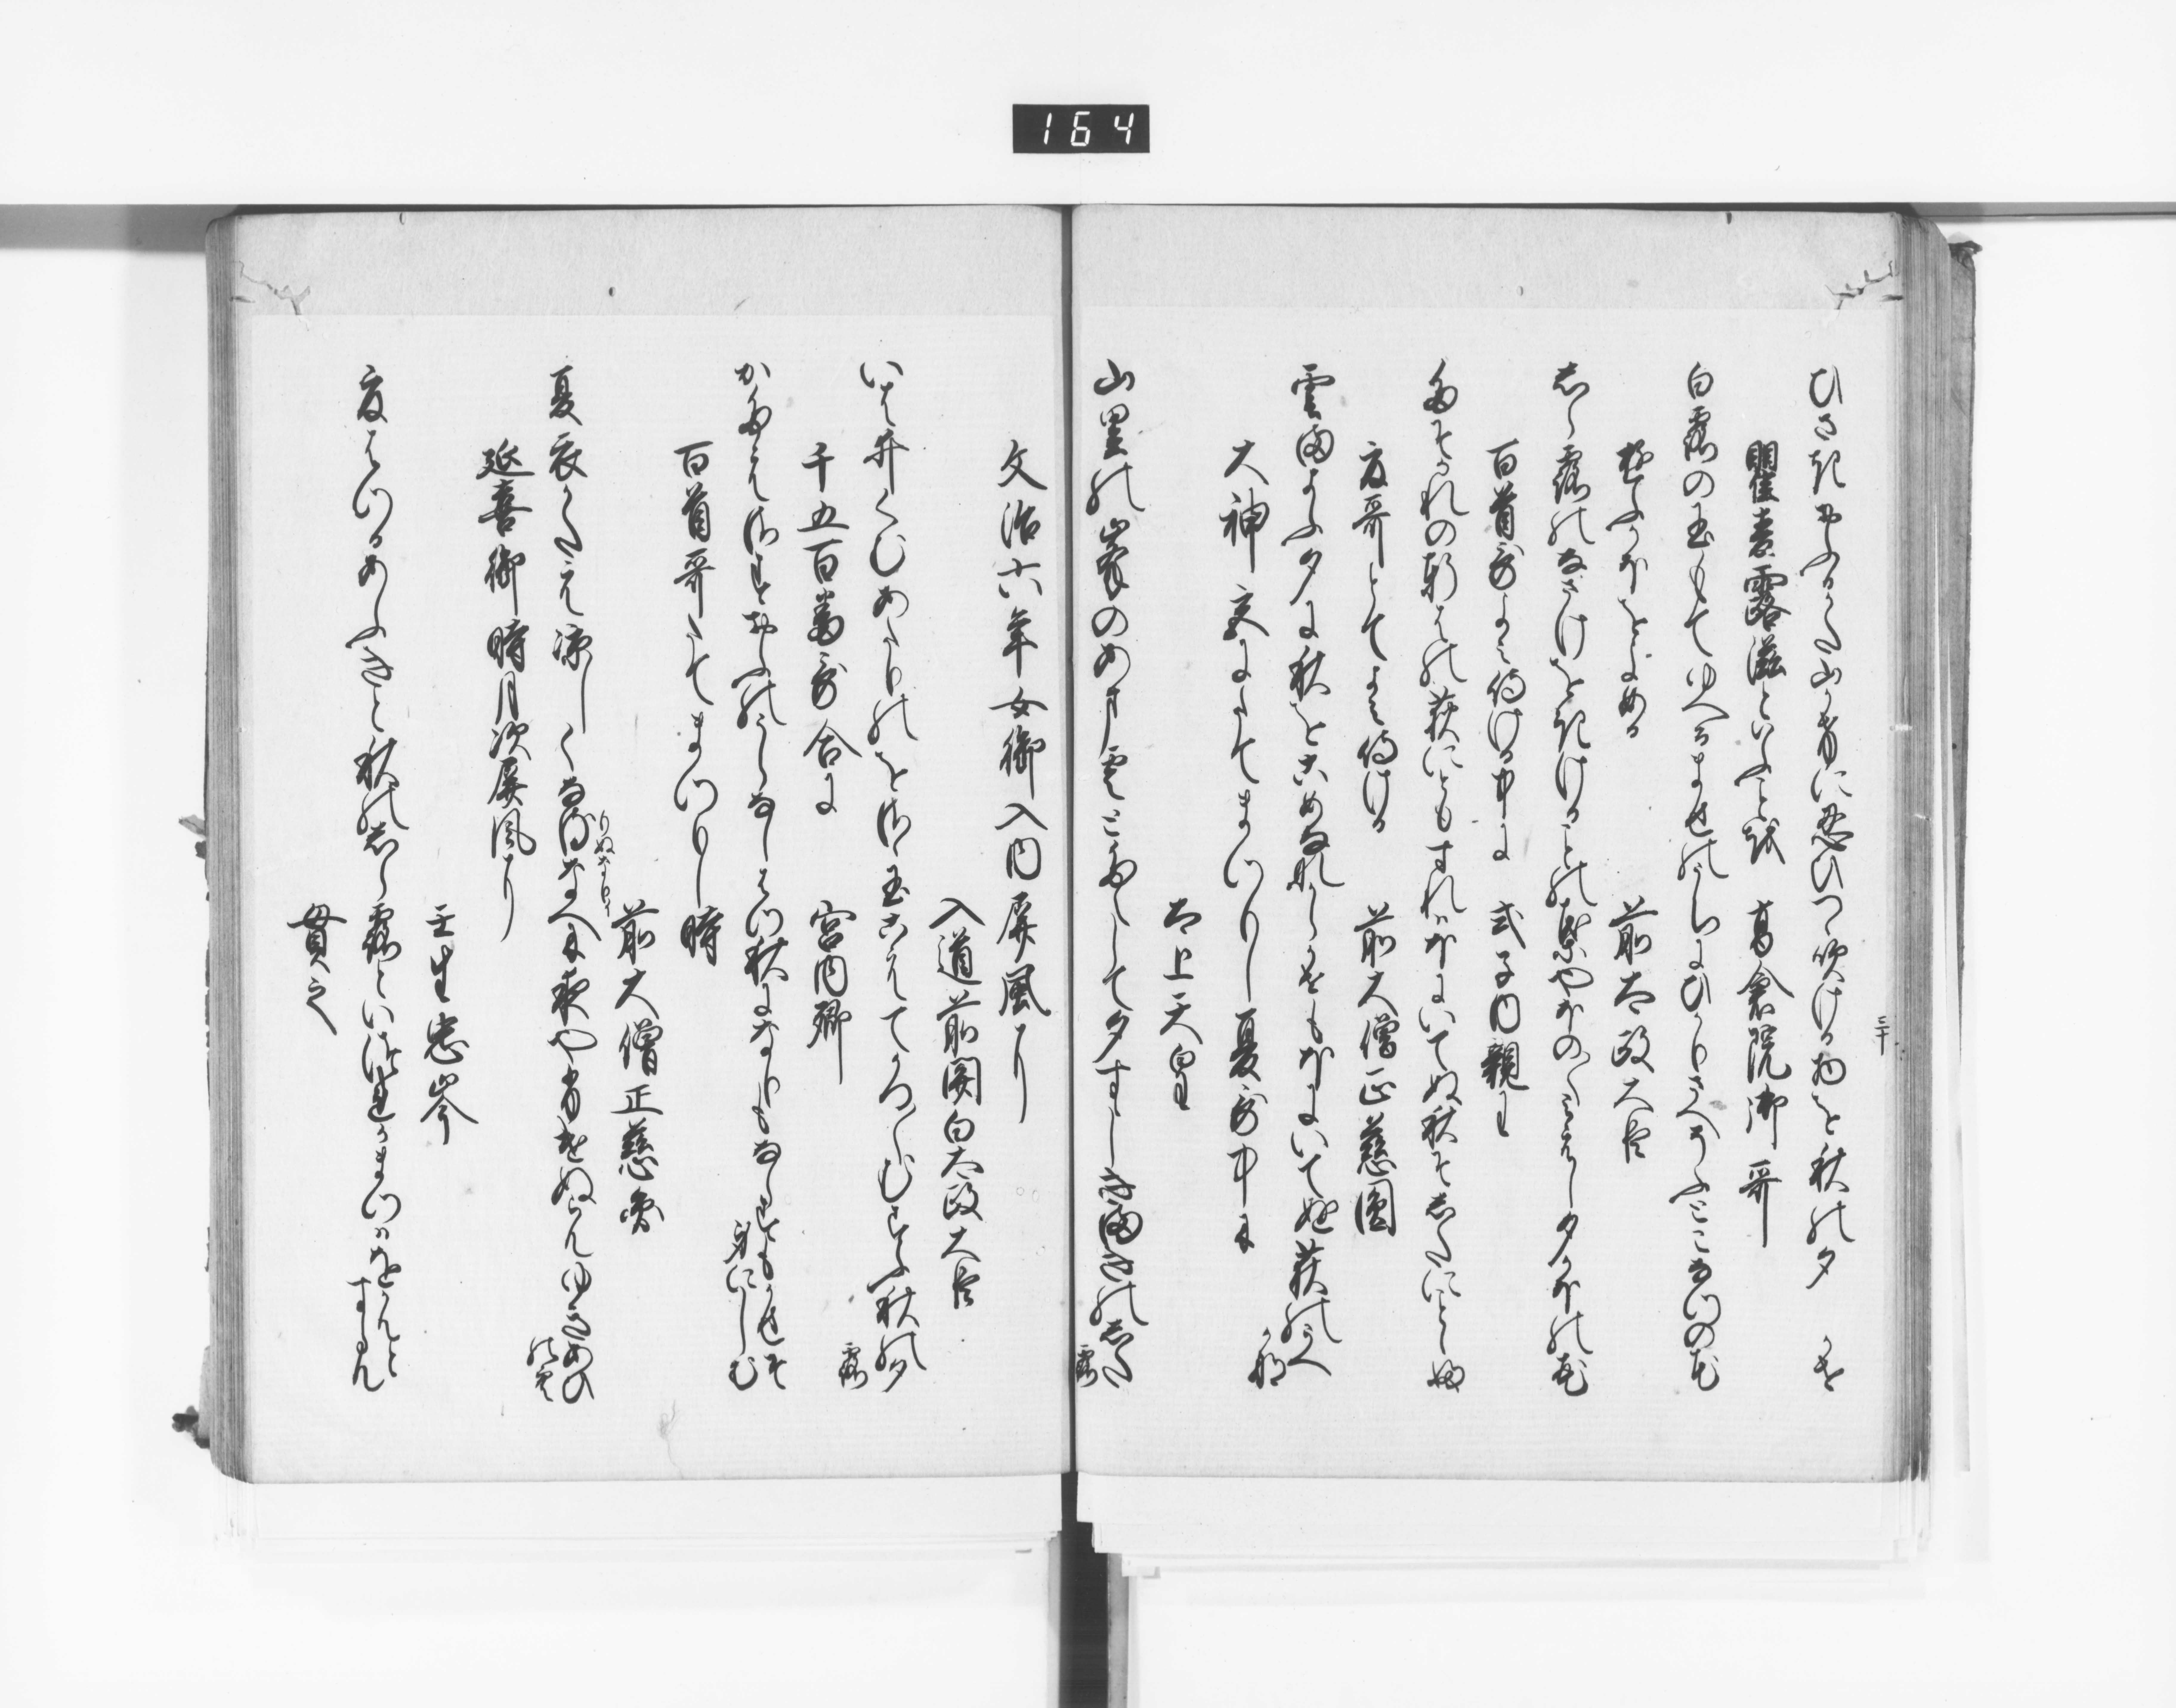 164
三十
ひさきおふるかた山かけに忍ひつゝ吹ける物を秋の夕かせ
瞿麦露滋といふことを　高倉院御哥
白露の玉もてゆへるませのうちにひかりさへそふとこなつの花
夕かほをよめる　前太政大臣
しら露のなさけをきけることの葉やほの／＼みえし夕かほの花
百首哥よみ侍ける中に　式子内親王
たそかれの軒はの荻にともすれはほにいてぬ秋そしたにことゝふ
夏哥とてよみ侍ける　前大僧正慈円
雲まよふ夕に秋をこめなからかせもほにいてぬ荻のうへかな
大神宮にたてまつりし夏哥中に
太上天皇
山里の峯のあま雲とたえして夕すゝしきまきのした露
文治六年女御入内屏風に
入道前関白太政大臣
いは井くむあたりのをさゝ玉こえてかつ／＼むすふ秋の夕露
千五百番哥合に　宮内卿
かたえさすおふのうらなしはつ秋になりもならすもかせそ身にしむ
百首哥たてまつりし時
前大僧正慈円
夏衣かたへ涼しくなるなへに夜や更ぬらんゆきあひの空
りぬなりイ
延喜御時月次屏風に
壬生忠岑
夏はつるあふきと秋のしら露といつれかまつはをかんとすらん
貫之